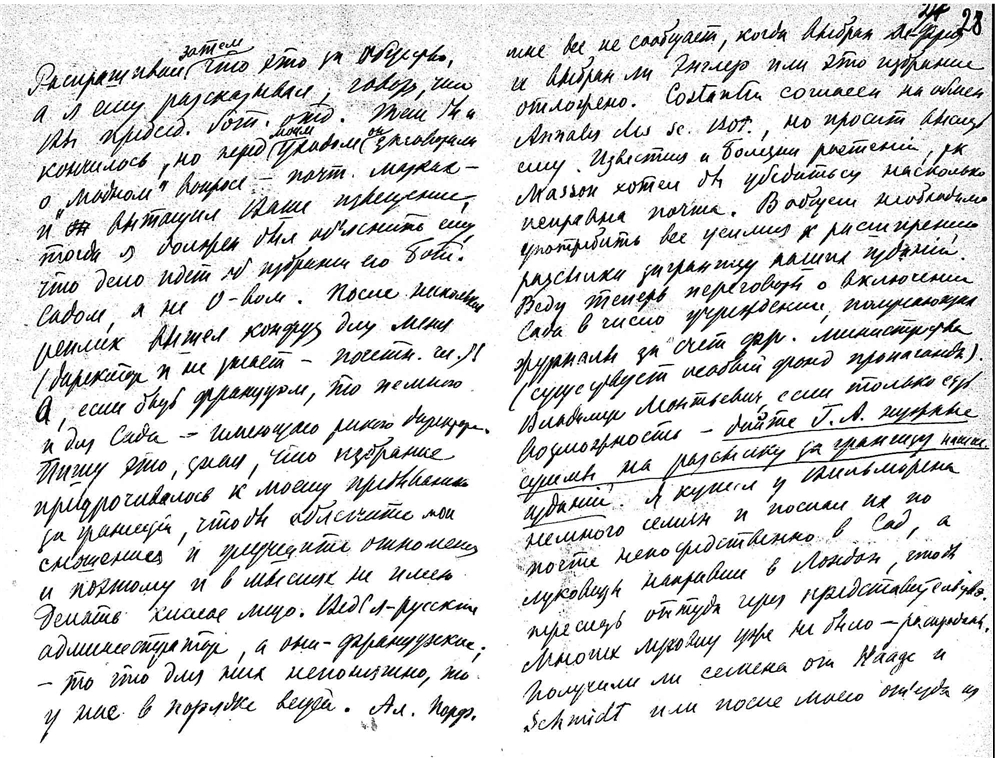 затем
Распрашивал что это за общество,
а я ему рассказывал, говоря, что
Вы председ. бот. отд. Тем бы и
кончилось, но перед моим уходом он заговорил
о "модном" вопросе — почт. марках —
и вытащил Ваше извещение,
тогда я должен был объяснить ему,
что дело идет об избрании его Бот.
Садом, а не О-вом. После нескольких
реплик вышел конфуз для меня
(директор и не знает — почетн. чл.!!
А, если быть французом, то немного
и для Сада — имеющего такого директора.
Пишу это, зная, что избрание
приурочивалось к моему пребыванию
за границей, чтобы облегчить мои
сношения и улучшить отношения
и поэтому и в мыслях не имею
делать кислое лицо. Ведь я — русский
администратор, а они — французские;
— то что для них непонятно, то
у нас в порядке вещей. Ал.
28
мне все не сообщает, когда выбран
и выбран ли Энглер или это избрание
отложено. Costantin согласен на обмен
Annales des Sc. Bot., но просит высылать
ему Известия и Болезни растений, так как
Masson хотел бы убедиться насколько
исправна почта. Вообще необходимо
употребить все усилия к расширению
рассылки заграницу наших изданий.
Веду теперь переговоры о включении
Сада в число учреждений, получающих
журналы за счет фр. министерства
(существует особый фонд пропаганды).
Владимир Леонтьевич если только есть
возможность — дайте Г. А. нужные
суммы на рассылку за границу наших
изданий. Я купил у Вильморена
немного семян и послал их по
почте непосредственно в Сад, а
луковицы направил в Лондон, чтобы
переслать оттуда через представительство.
Многих луковиц уже не было — распроданы.
Получили ли семена от Haage и
Schmidt или после моего отъезда из